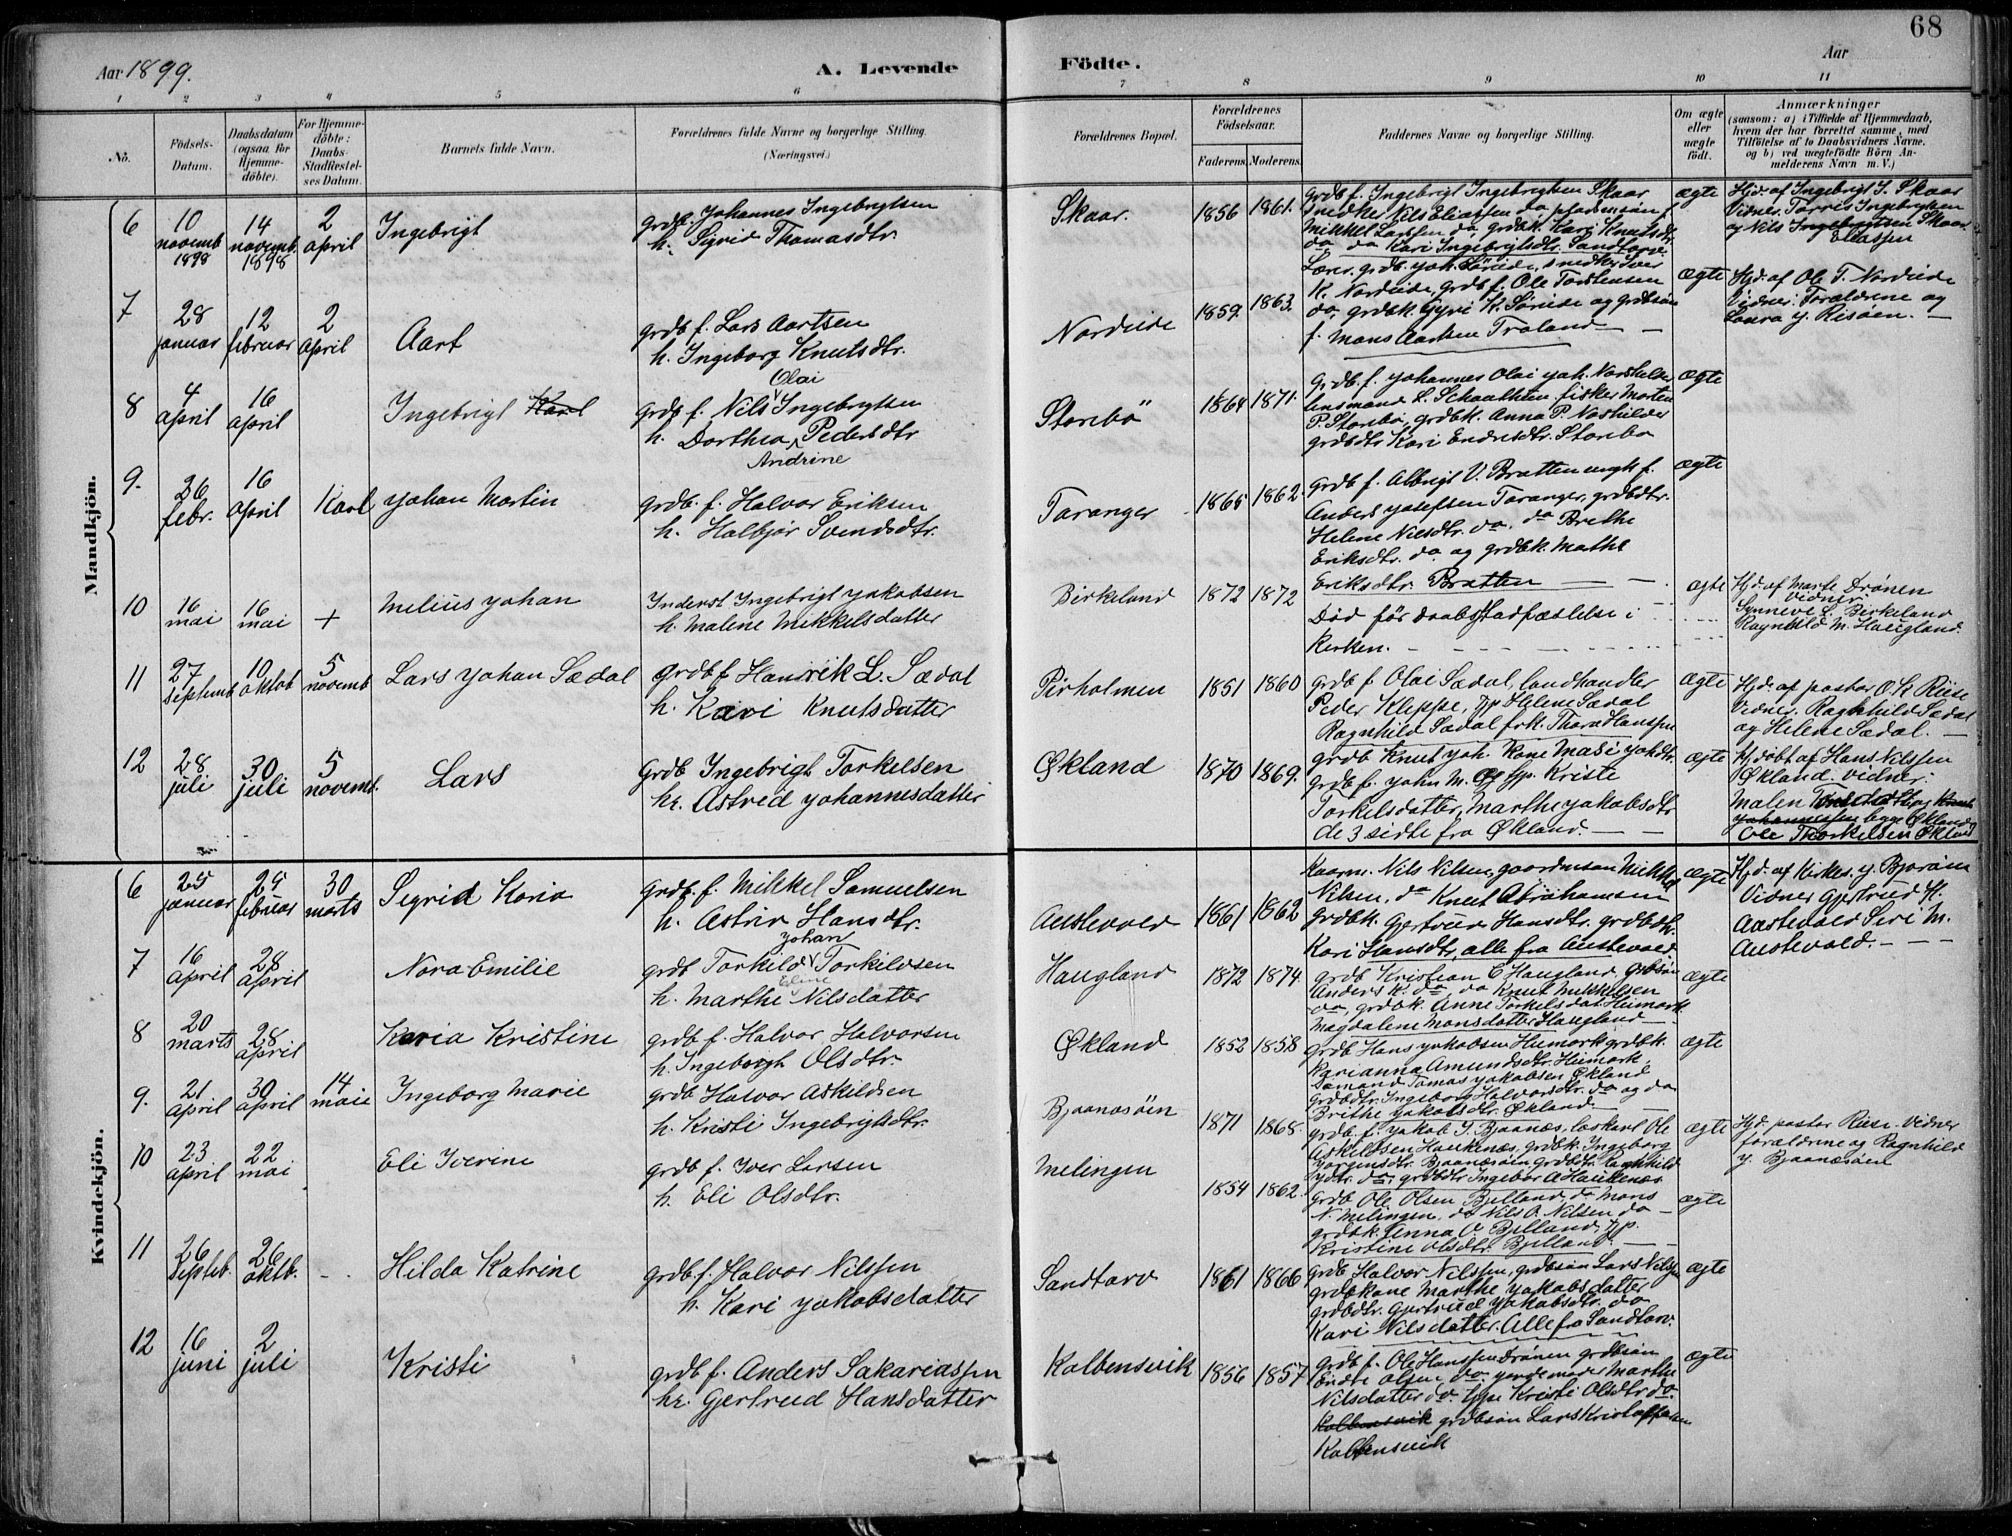 68
Aar 1899.
A. Levende
Födte.
Aar
1 2 3 4 5 6 7 8 9 10 11
No.
Födsels-
Datum.
Daabsdatum
(ogsaa for
Hjemme-
döbte).
For Hjemme-
döbte:
Daabs-
Stadfæstel-
ses Datum.
Barnets fulde Navn.
Forældrenes fulde Navne og borgerlige Stilling.
(Næringsvei.)
Forældrenes Bopæl.
Forældrenes
Födselsaar.
Faderens. Moderens.
Faddernes Navne og borgerlige Stilling.
Om ægte
eller
uægte
födt.
Anmærkninger
(saasom: a) i Tilfælde af Hjemmedaab,
hvem der har forrettet samme, med
Tilföielse af to Daabsvidners Navne.
og b) ved uægtefödte Börn An-
melderens Navn m. V.)
Mandkjön.
6
10
novemb
1898
14
novemb.
1898
2
april
Ingebrigt
grdb. Johannes Ingebrigtsen
h. Sigrid Thomasdtr.
Skaar.
1856 1861.
grdb f. Ingebrigt Ingebrigtsen Skaar
snedker Nils Eliassen do
Mikkel Larssen do, grdbk. Kari Knutsdtr.
do do Kari Ingebrigtsdtr. Sandtorv.
ægte
Hjd. af Ingebrigt I. Skaar
Vidner: Torris Ingebrigtsen
og Nils Ingebrigtsen Skaar
Eliassen
7
28
januar
12
februar
2
april
Aart
grdb f. Lars Aartsen
h. Ingeborg Knutsdtr.
Nordeide
1859. 1863.
Lærer, grdb. Joh. Söreide, snedker Iver
K. Nordeide, grdb. f. Ole Torstensen
do, grdbk. Gyri K. Söreide og grdbsön
f. Mons Aartsen Traland
ægte
Hjd. af Ole T. Nordeide
Vidner: Forældrene og
Laura J. Risöen.
8
4
april
16
april
Ingebrigt Karl
Olai
grdb f. Nils Ingebrigtsen
h. Dorthea Pedersdtr
Andrine
Storebö
1864 1871.
grdb. f. Johannes Olai Joh.
lensmand L. Schaathun, fisker Morten
P. Storebö, grdbk. Anna P.
grdbdtr Kari Endresdtr. Storebö
ægte
9.
26
febr.
16
april
Karl Johan Martin
grdb. f. Halvor Eriksen
h. Halbjör Svendsdtr.
Taranger
1865 1862.
grdb f. Albrigt V. Bratten ungk f.
Anders Josefsen Taranger, grdbdtr.
Helene Nilsdtr. do, do Brithe
Eriksdtr. do og grdbk. Mathe
Eriksdtr. Bratten
ægte
10
16
mai
16
mai
+
Melius Johan
Inderst Ingebrigt Jakobsen
h. Malene Mikkelsdatter
Birkeland
1872 1872
Död för Daabsstadfæstelse i
Kirken.
ægte
Hjd. af Marte Drönen
Vidner:
Synneve L. Birkeland
Ragnhild M. Haugland.
11
27
Septemb
10
oktob
5
novemb
Lars Johan Sædal
grdb f. Hanrik L. Sædal
h. Kari Knutsdatter
Pirholmen
1851 1860
grdb f Olai Sædal, landhandler
Peder Kleppe, Helene Sædal
Ragnhild Sædal frk. Thora Hanssen
ægte
Hjd. af pastor O. K. Riise
Vidner. Ragnhild Sædal
og Helene Sædal.
12
28
juli
30
juli
5
novemb.
Lars
grdb Ingebrigt Torkelsen
hr. Astrid Johannesdatter
Økland
1870 1869.
grdb Knut Joh. kone Masi Jakdtr.
grdb f. John M. Kriste
Torkelsdatter, Marthe Jakobsdtr
de 3 sidte fra Økland.
ægte
Hjdöbt af Hans Nilssen
Økland. Vidner:
Malen
Ole Thorkelsen Økland
Kvindekjön.
6
25
januar
25
februar
30
marts
Sigrid Karia
grdb. f. Mikkel Samuelsen
h. Astrid Hansdtr.
Austevold
1861 1862
Kaarm. Nils Nilsen, gaardmsön Mikkel
Nilsen, do Knut Abrahamsen
grdbk. Gjertrud Hansdtr. grdbdtr.
Kari Hansdtr, alle fra Austevold
ægte
Hjd. af Kirkes. J. Bjorösen
Vidner Gjertrud H.
Austevold Siri M.
Austevold.
7
16
april
28
april
Nora Emilie
Johan
grdb Torkild Torkildsen
Eline
h. Marthe Nilsdatter
Haugland
1872 1874.
grdb Kristian C Haugland, grdbsön
Anders K. do, do Knut Mikkelsen
do, grdbk. Anne Torkelsdat. Heimark
Magdalene Monsdatter Haugland
ægte
8
20
marts
28
april
Karia Kristine
grdb f. Halvor Halvorsen
h. Ingeborgh Olsdtr.
Økland
1852 1858
grdb Hans Jakobsen Heimark grdbk.
Karianna Amundsdtr. Heimark,
Sömand Tomas Jakobsen Økland
grdbdtr. Ingeborg Halvorsdtr. do og do
Brithe Jakobsdtr. Økland.
ægte
9.
21
april
30
april
14
maie
Ingeborg Marie
grdb Halvor Askildsen
h. Kristi Ingebrigtsdtr.
Bjaanæsöen
1871 1868.
grdb. f. Jakob I. Bjaanæs, löskarl Ole
Askildsen Haukenæs, grdbk. Ingeborg
Jörgensdtr. Bjaanæsöen grdbdtr. Ragnhild
Jdtr. do, grdbdtr Ingebor A Haukenæs
ægte
Hjd. pastor Riise. Vidner
forældrene og Ragnhild
J. Bjaanæsöen
10
23
april
22
mai
Eli Iverine
grdb f. Iver Larsen
h. Eli Olsdtr.
Melingen
1854 1862.
grdb Ole Olsen Bjelland, do Mons
N. Melingen, do Nils O. Nilsen do
grdbk. Anna O. Bjelland,
Kristine Olsdtr. Bjelland.
ægte
11
26
Septeb.
26
oktb.
Hilda Katrine
grdb f. Halvor Nilssen
h. Kari Jakobsdatter
Sandtorv
1861 1866
grdb Halvor Nilssen, grdbsön Lars Nilssen
grdbkone Marthe Jakobsdatter
grdbdtr. Gjertrud Jakobsdtr. do
Kari Nilsdatter. Alle fra Sandtorv.
ægte
12
16
juni
2
juli
Kristi
grdb f. Anders Sakariassen
hr. Gjertrud Hansdatter
Kalbensvik
1856 1857
grdb f. Ole Hanssen Drönen grdbsön
Endre Olsen, do Marthe
Nilsdatter do. Kristi Olsdtr do.
Kalbensvik grdbsön Lars Kristoffersen
Kalbensvik
ægte